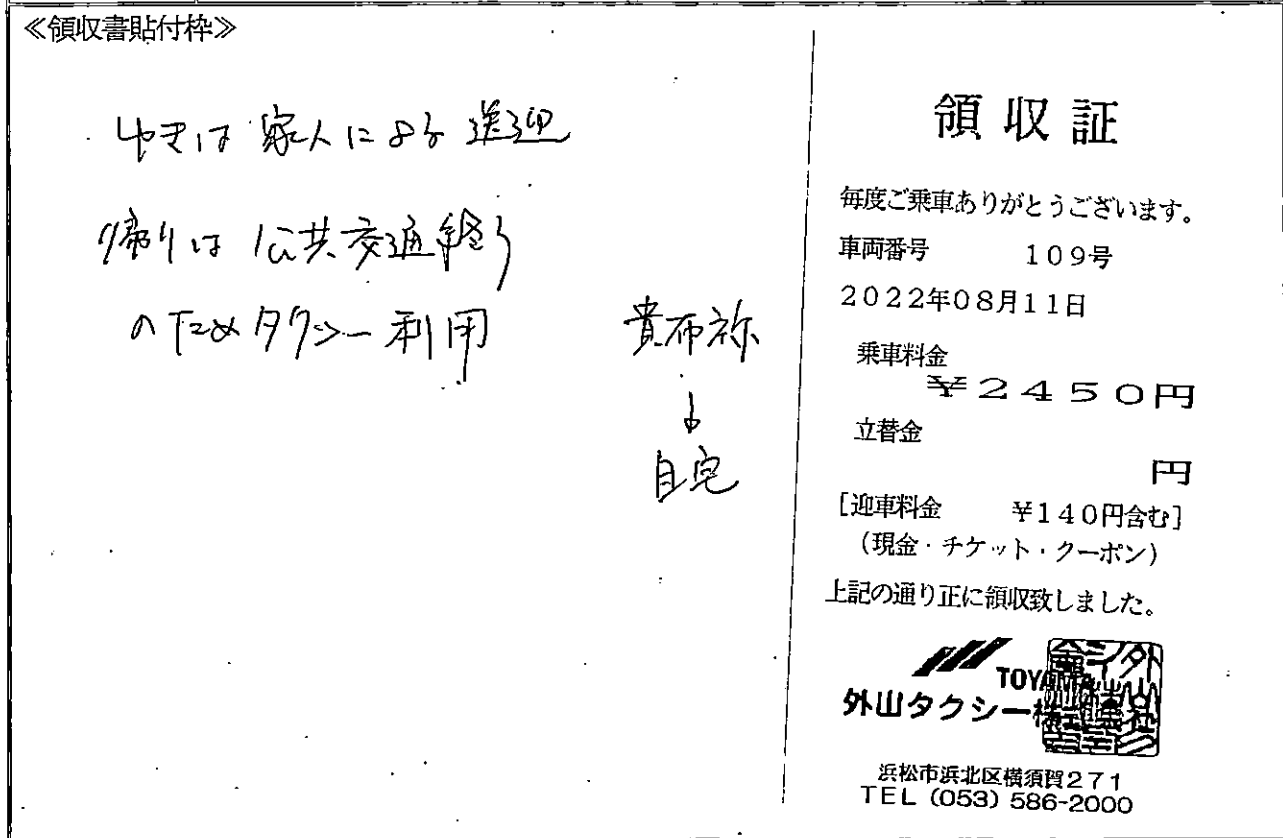 ≪領収書貼付枠≫
ゆきは家人による送迎
帰りは公共交通終り
のためタクシー利用
貴布祢
↓
自宅
領収証
毎度ご乗車ありがとうございます。
車両番号 109号
2022年08月11日
乗車料金
¥2450円
立替金
円
[迎車料金 ¥140円含む]
(現金・チケット・クーポン)
上記の通り正に領収致しました。
TOYAMA
外山タクシー株式会社
浜松市浜北区横須賀271
TEL (053) 586-2000